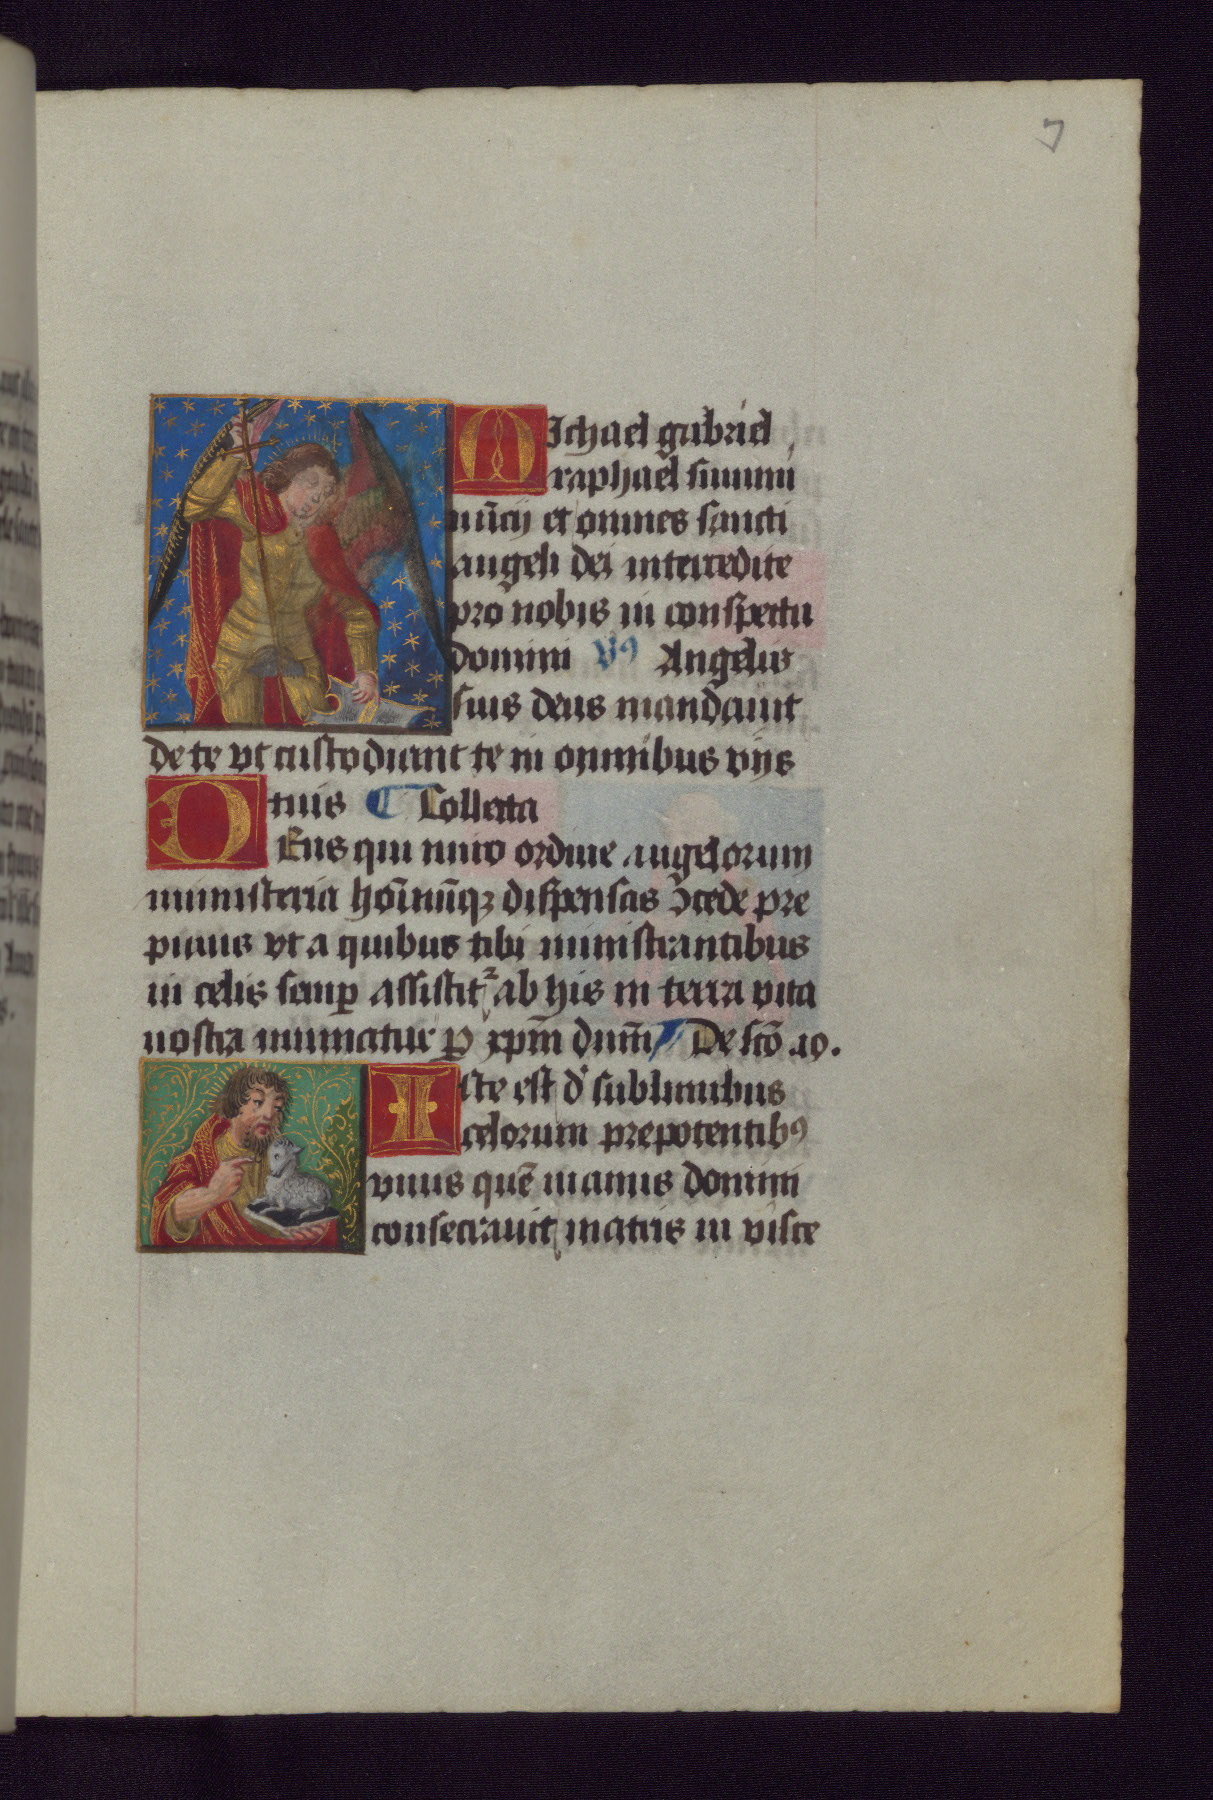 7
MIchael gabriel
raphael summi
nūcij et omnes sancti
angeli dei intercedite
pro nobis in conspectu
domini Vꝰ Angelis
suis deus mandauit
de te vt custodiant te in omnibus vijs
tuis Collecta
DEus qui miro ordine angelorum
ministeria hoīmūqꝫ dispensas ↄ̄cede pre
picius vt a quibus tibi ministrantibus
in celis semꝑ assistitᷣ ab his in terra vita
nostra muniatur ꝑ xpm̄ dnm̄ De scō .io.
Iste est d' sublimibus
celorum prepotentibꝰ
vnus quē manus domini
consecrauit matris in visce